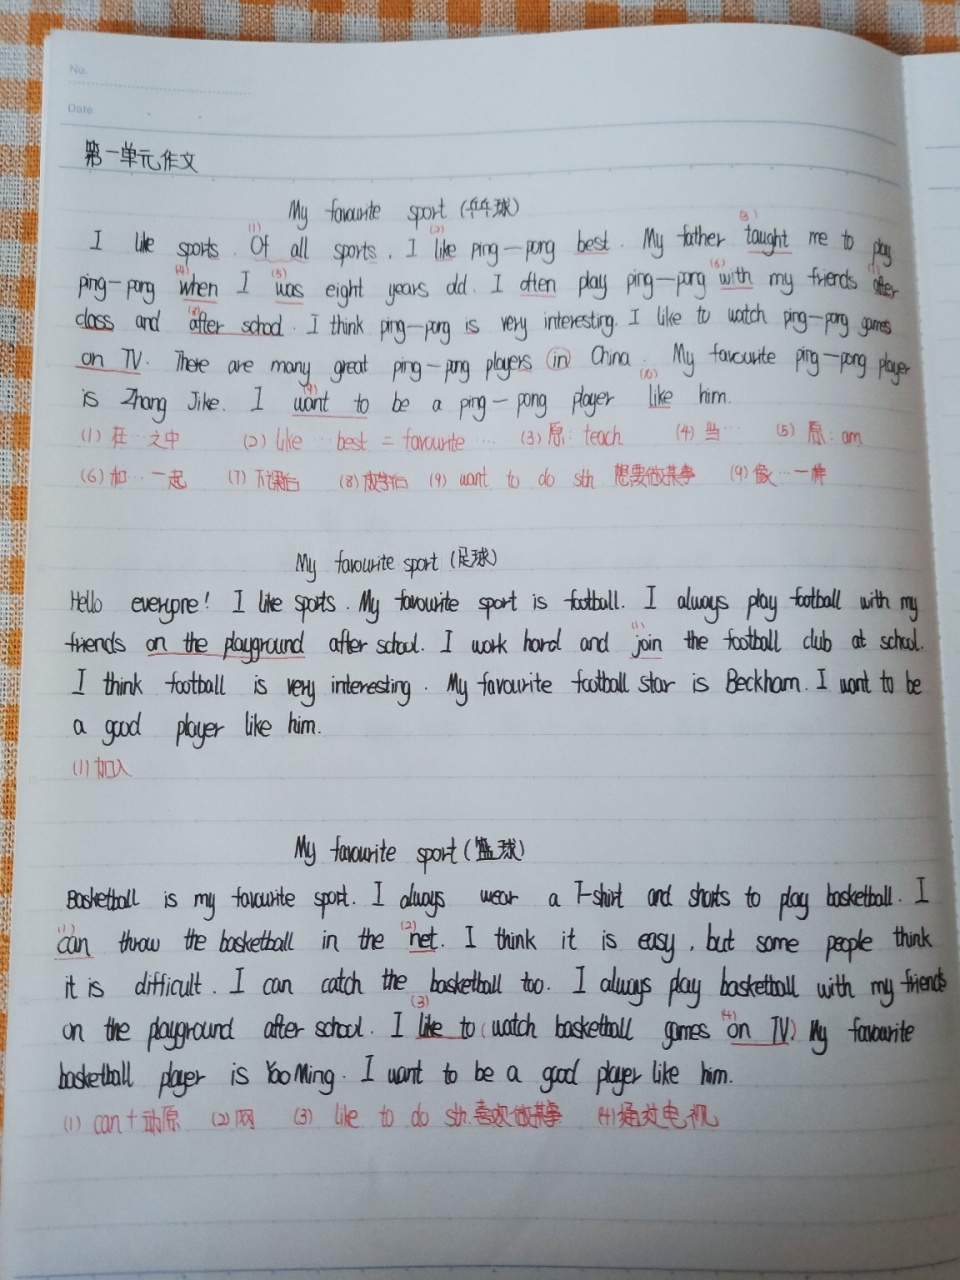 No.
Date
第一单元作文
My favourite sport (乒乓球)
I like sports. Of all sports, I like ping-pong best. My father taught me to play
ping-pong when I was eight years old. I often play ping-pong with my friends after
class and after school. I think ping-pong is very interesting. I like to watch ping-pong games
on TV. There are many great ping-pong players in China. My favourite ping-pong player
is Zhang Jike. I want to be a ping-pong player like him.
(1) 在…之中 (2) like … best = favourite … (3) 原: teach (4) 当… (5) 原: am
(6) 和…一起 (7) 下课后 (8) 放学后 (9) want to do sth 想要做某事 (9) 像…一样
My favourite sport (足球)
Hello everyone! I like sports. My favourite sport is football. I always play football with my
friends on the playground after school. I work hard and join the football club at school.
I think football is very interesting. My favourite football star is Beckham. I want to be
a good player like him.
(1) 加入
My favourite sport (篮球)
Basketball is my favourite sport. I always wear a T-shirt and shorts to play basketball. I
can throw the basketball in the net. I think it is easy, but some people think
it is difficult. I can catch the basketball too. I always play basketball with my friends
on the playground after school. I like to (watch basketball games on TV) My favourite
basketball player is Yao Ming. I want to be a good player like him.
(1) can + 动原 (2) 网 (3) like to do sth. 喜欢做某事 (4) 通过电视